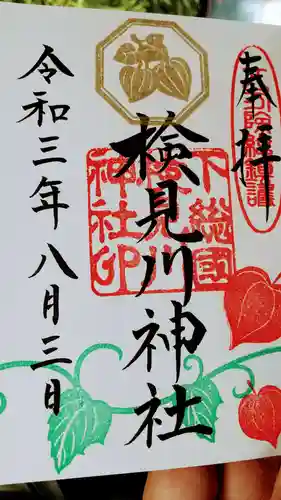 奉拝
検見川神社
下総国
検見川
神社印
令和三年八月三日